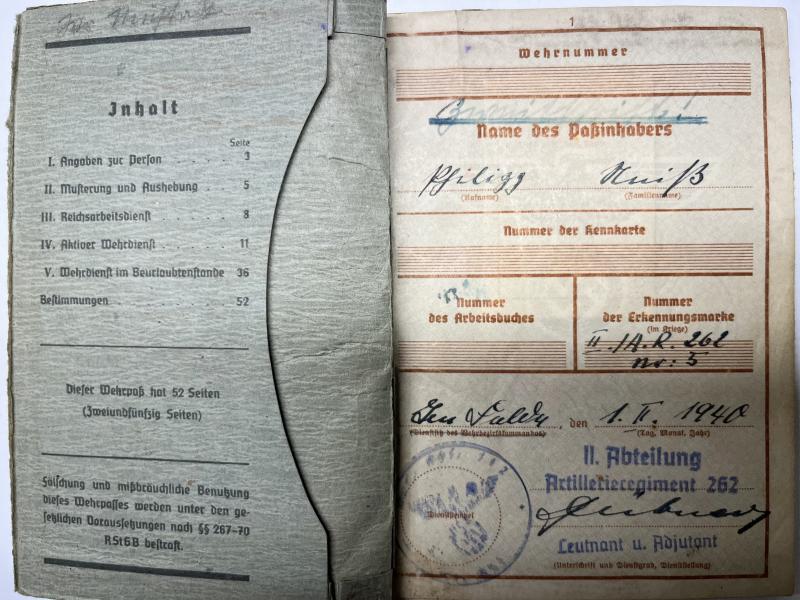 Inhalt
Seite
I. Angaben zur Person . . . . . 3
II. Musterung und Aushebung . . 5
III. Reichsarbeitsdienst . . . . . 8
IV. Aktiver Wehrdienst . . . . . 11
V. Wehrdienst im Beurlaubtenstande 36
Bestimmungen . . . . . 52
Dieser Wehrpaß hat 52 Seiten
(Zweiundfünfzig Seiten)
Fälschung und mißbräuchliche Benutzung
dieses Wehrpasses werden unter den ge-
setzlichen Voraussetzungen nach §§ 267-70
RStGB bestraft.
1
Wehrnummer
Name des Paßinhabers
Philipp
(Rufname) (Familienname)
Nummer der Kennkarte
Nummer
des Arbeitsbuches
Nummer
der Erkennungsmarke
(im Kriege)
II./A.R. 262
Nr: 5
Im Felde, den 1. II. 1940
(Dienstsitz des Wehrbezirkskommandos) (Tag, Monat, Jahr)
(Dienststempel)
II. Abteilung
Artillerieregiment 262
Leutnant u. Adjutant
(Unterschrift und Dienstgrad, Dienststellung)